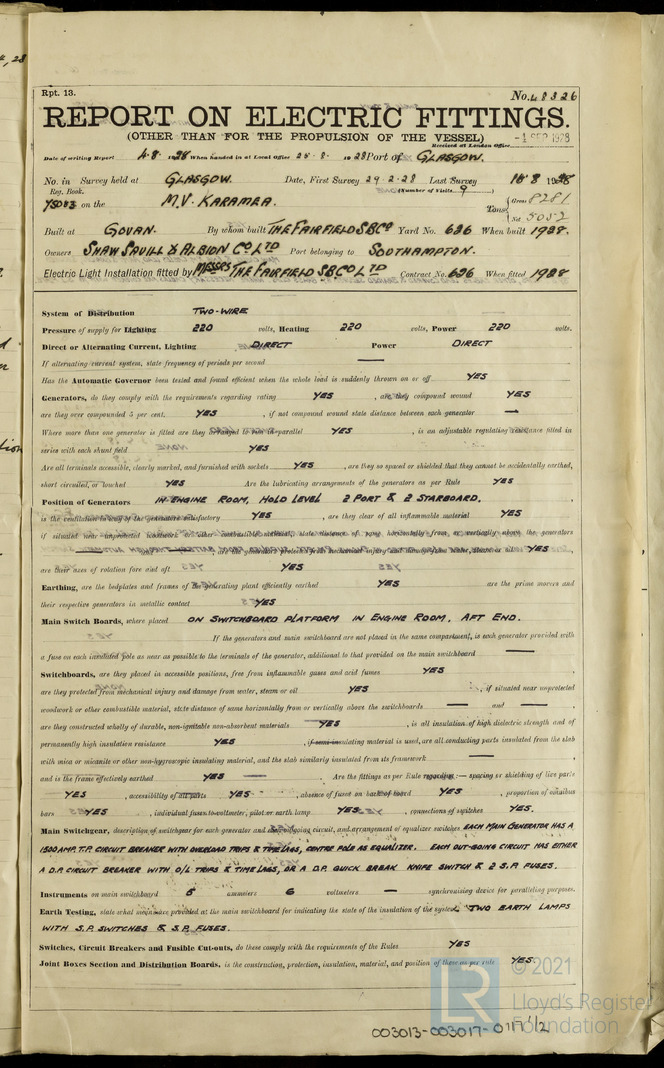 Rpt. 13.
No. 48326
REPORT ON ELECTRIC FITTINGS.
(OTHER THAN FOR THE PROPULSION OF THE VESSEL)
Received at London Office
-4 SEP 1928
Date of writing Report 4·8· 1928 When handed in at Local Office 25·8· 1928 Port of GLASGOW.
No. in Survey held at GLASGOW. Date, First Survey 29·2·28 Last Survey 18·8 1928
Reg. Book. (Number of Visits 9 )
75083 on the M.V. KARAMEA. Tons { Gross 8281
Net 5052
Built at GOVAN. By whom built THE FAIRFIELD SB Co Yard No. 626 When built 1928.
Owners SHAW SAVILL & ALBION Co LTD Port belonging to SOUTHAMPTON.
Electric Light Installation fitted by MESSRS THE FAIRFIELD SB Co LTD Contract No. 626 When fitted 1928
System of Distribution TWO-WIRE
Pressure of supply for Lighting 220 volts, Heating 220 volts, Power 220 volts.
Direct or Alternating Current, Lighting DIRECT Power DIRECT
If alternating current system, state frequency of periods per second —
Has the Automatic Governor been tested and found efficient when the whole load is suddenly thrown on or off YES
Generators, do they comply with the requirements regarding rating YES , are they compound wound YES
are they over compounded 5 per cent. YES , if not compound wound state distance between each generator —
Where more than one generator is fitted are they arranged to run in parallel YES , is an adjustable regulating resistance fitted in
series with each shunt field YES
Are all terminals accessible, clearly marked, and furnished with sockets YES , are they so spaced or shielded that they cannot be accidentally earthed,
short circuited, or touched YES Are the lubricating arrangements of the generators as per Rule YES
Position of Generators IN ENGINE ROOM, HOLD LEVEL 2 PORT & 2 STARBOARD.
is the ventilation in way of the generators satisfactory YES , are they clear of all inflammable material YES
if situated near unprotected woodwork or other combustible material, state distance of same horizontally from or vertically above the generators
— and — , are the generators protected from mechanical injury and damage from water, steam or oil YES
are their axes of rotation fore and aft YES
Earthing, are the bedplates and frames of the generating plant efficiently earthed YES are the prime movers and
their respective generators in metallic contact YES
Main Switch Boards, where placed ON SWITCHBOARD PLATFORM IN ENGINE ROOM, AFT END.
If the generators and main switchboard are not placed in the same compartment, is each generator provided with
a fuse on each insulated pole as near as possible to the terminals of the generator, additional to that provided on the main switchboard —
Switchboards, are they placed in accessible positions, free from inflammable gases and acid fumes YES
are they protected from mechanical injury and damage from water, steam or oil YES , if situated near unprotected
woodwork or other combustible material, state distance of same horizontally from or vertically above the switchboards — and —
are they constructed wholly of durable, non-ignitable non-absorbent materials YES , is all insulation of high dielectric strength and of
permanently high insulation resistance YES , if semi-insulating material is used, are all conducting parts insulated from the slab
with mica or micanite or other non-hygroscopic insulating material, and the slab similarly insulated from its framework —
and is the frame effectively earthed YES Are the fittings as per Rule regarding:— spacing or shielding of live parts
YES , accessibility of all parts YES , absence of fuses on back of board YES , proportion of omnibus
bars YES , individual fuses to voltmeter, pilot or earth lamp YES , connections of switches YES.
Main Switchgear, description of switchgear for each generator and each outgoing circuit, and arrangement of equalizer switches EACH MAIN GENERATOR HAS A
1500 AMP. T.P. CIRCUIT BREAKER WITH OVERLOAD TRIPS & TIME LAGS, CENTRE POLE AS EQUALIZER. EACH OUT-GOING CIRCUIT HAS EITHER
A D.P. CIRCUIT BREAKER WITH O/L TRIPS & TIME LAGS, OR A D.P. QUICK BREAK KNIFE SWITCH & 2 S.P. FUSES.
Instruments on main switchboard 5 ammeters 6 voltmeters — synchronising device for paralleling purposes.
Earth Testing, state what means are provided at the main switchboard for indicating the state of the insulation of the system TWO EARTH LAMPS
WITH S.P. SWITCHES & S.P. FUSES.
Switches, Circuit Breakers and Fusible Cut-outs, do these comply with the requirements of the Rules YES
Joint Boxes Section and Distribution Boards, is the construction, protection, insulation, material, and position of these as per rule YES.
LR
© 2021
Lloyd's Register
Foundation
003013-003017-0117 1/2